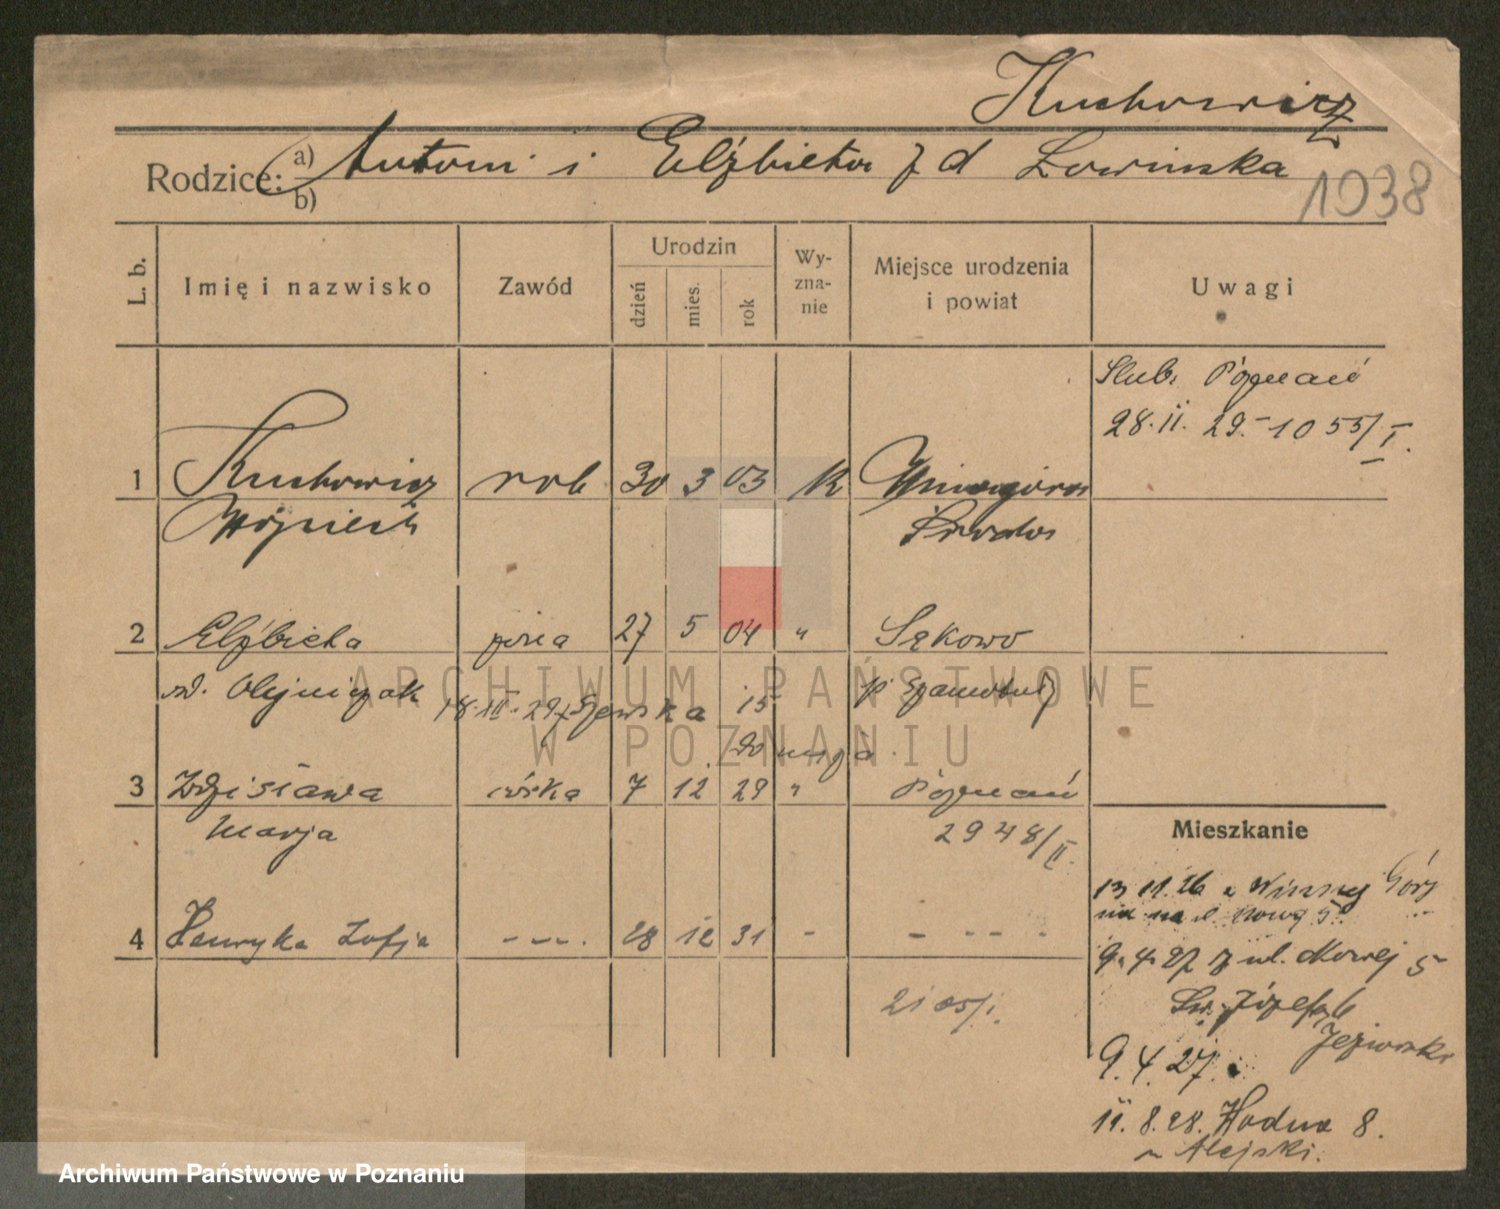 Kuchowicz
Rodzice: a) Antoni i Elżbieta z d Łowińska
b)
1938
L. b.
Imię i nazwisko
Zawód
Urodzin
dzień
mies.
rok
Wy-
zna-
nie
Miejsce urodzenia
i powiat
Uwagi
Slub. Poznań
28.II. 29.-1055/I.
1 Kuchowicz rob 30 3 03 K Winnagóra
Wojciech Środa
2 Elżbieta żona 27 5 04 " Sękowo
od. Olejniczak 18.III.29 z Szewska 15 p Szamotuły
do męża.
3 Zdzisława córka 7 12 29 " Poznań
Marja 2948/II.
Mieszkanie
13 11. 26 z Winnej Góry
na ul. Nową 5
4 Henryka Zofja - - - . 28 12 31 - - - - -
9. 4. 27 z ul. Nowej 5
Św. Józefa 6
Jeziorski
9. 4. 27.
11. 8. 28. Wodna 8.
u Alejski.
ARCHIWUM PAŃSTWOWE
W POZNANIU
Archiwum Państwowe w Poznaniu